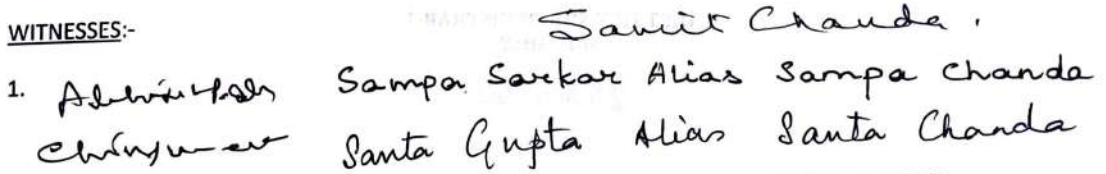 WITNESSES:-
Samir Chanda.
1. Sampa Sarkar Alias Sampa Chanda
Santa Gupta Alias Santa Chanda